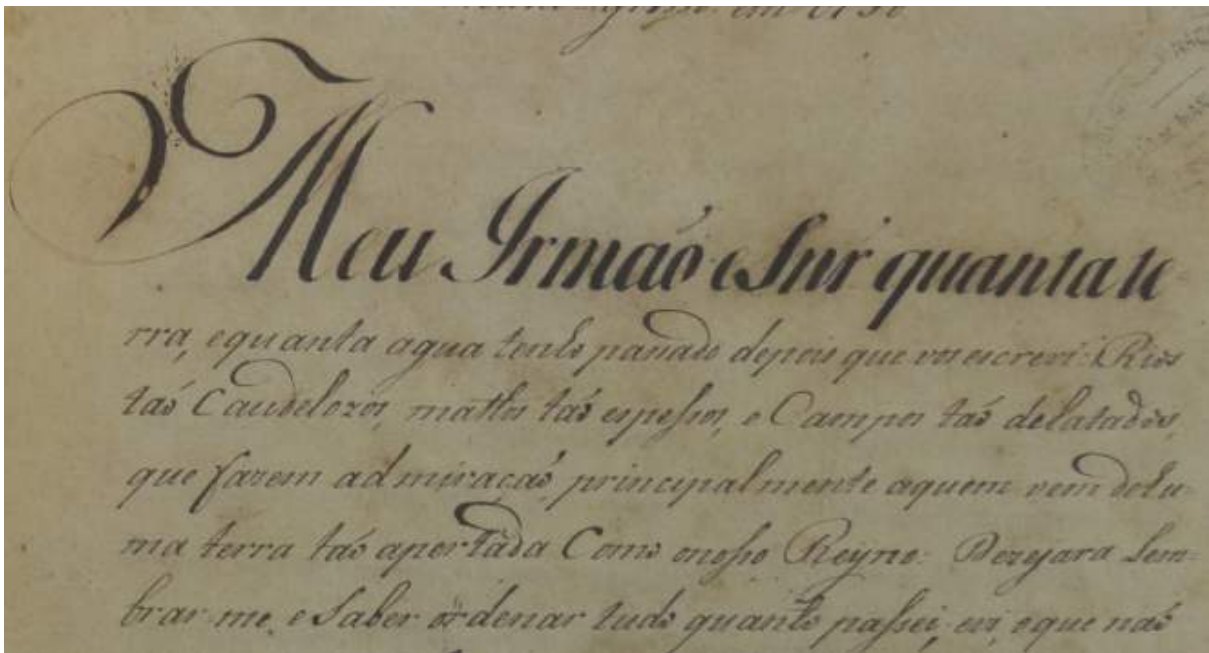 em 1750
Meu Irmaõ e Snr quanta te
rra, e quanta agua tenho passado depois que vos escrevi: Rios
taõ Caudelozos, mattos taõ espessos, e Campos taõ delatados,
que fazem admiraçaõ, principalmente aquem vem de hu
ma terra taõ apertada Como onosso Reyno. Dezejara lem
brar me, e Saber ordenar tudo quanto passei, e vi, e que naõ